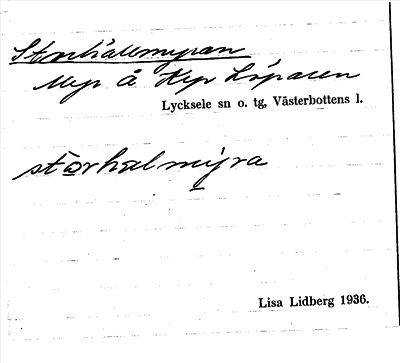 Storhälemyran
Myr å Kxp Löparen
Lycksele sn o. tg, Västerbottens l.
stōrhælmy̆ra
Lisa Lidberg 1936.